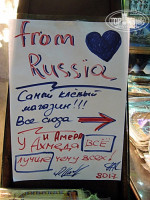 from
Russia
Самый клёвый
магазин!!!
Все сюда
у и Амера
Ахмеда ВСЁ
лучше чем у всех!
2017